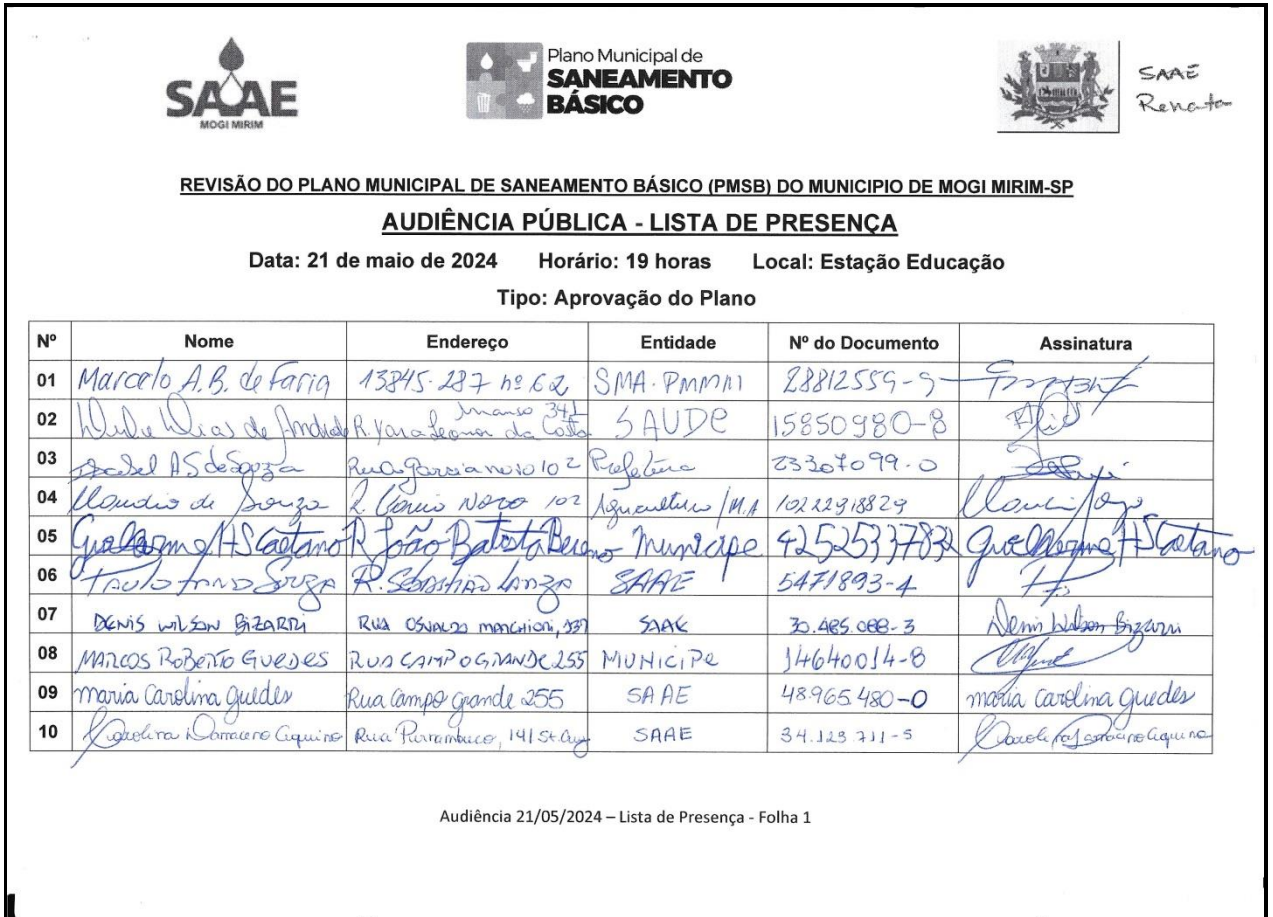 SAAE
MOGI MIRIM
Plano Municipal de
SANEAMENTO
BÁSICO
SAAE
Renata
REVISÃO DO PLANO MUNICIPAL DE SANEAMENTO BÁSICO (PMSB) DO MUNICIPIO DE MOGI MIRIM-SP
AUDIÊNCIA PÚBLICA - LISTA DE PRESENÇA
Data: 21 de maio de 2024 Horário: 19 horas Local: Estação Educação
Tipo: Aprovação do Plano
Nº Nome Endereço Entidade Nº do Documento Assinatura
01 Marcelo A.B. de Faria 13845-287 nº 62 SMA-PMMM 28812559-9
02 Dias de Andrade R. Yara Leonor da Costa Manso 341 SAUDE 15850980-8
03 Isabel AS de Souza Rua Garcia novo 102 Prefeitura 23307099-0
04 Claudio de Souza R. Novo 102 Agricultura/M.A 10222918829
05 Guilherme H S Caetano R João Batista Munícipe 42525337832 Guilherme H S Caetano
06 Paulo Souza R. Sebastião Lanza SAAE 5471893-4
07 DENIS WILSON BIZARRI RUA OSVALDO MANCHIONI, 337 SAAE 30.485.088-3 Denis Wilson Bizarri
08 MARCOS ROBERTO GUEDES RUA CAMPO GRANDE 255 MUNICIPE 14640014-8
09 maria Carolina guedes Rua Campo grande 255 SAAE 48.965.480-0 maria Carolina guedes
10 Carolina Aquino Rua Pernambuco, 141 St. Cruz SAAE 34.123.711-5
Audiência 21/05/2024 – Lista de Presença - Folha 1